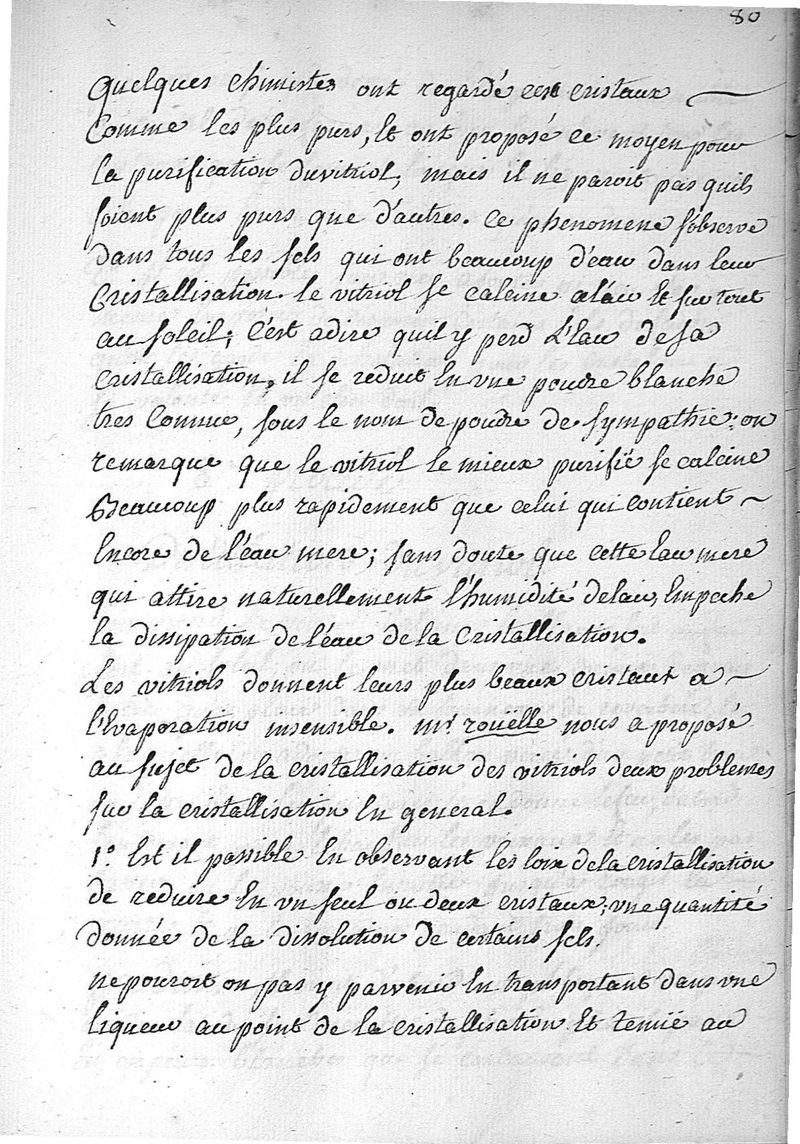 80
Quelques chimistes ont regardé ces cristaux
Comme les plus purs, et ont proposé ce moyen pour
la purification du vitriol; mais il ne paroit pas quils
soient plus purs que d'autres. Ce phenomene s'observe
dans tous les sels qui ont beaucoup d'eau dans leur
Cristallisation. le vitriol se calcine a l'air Et sur tout
au soleil; C'est adire quil y perd L'Eau de sa
Cristallisation, il se reduit En une poudre blanche
tres Connue, sous le nom de poudre de sympathie: on
remarque que le vitriol le mieux purifié se calcine
Beaucoup plus rapidement que celui qui contient
Encore de l'eau mere; sans doute que cette Eau mere
qui attire naturellement l'humidité de l'air, Empeche
la dissipation de l'eau de la Cristallisation.
Les vitriols donnent leurs plus beaux cristaux a
l'Evaporation insensible. mr. rouelle nous a proposé
au sujet de la cristallisation des vitriols deux problemes
sur la cristallisation En general.
1.º Est il possible En observant les loix de la cristallisation
de reduire En un seul ou deux cristaux, une quantité
donnée de la dissolution de certains sels.
ne pouroit on pas y parvenir En transportant dans une
liqueur au point de la cristallisation Et tenüe au